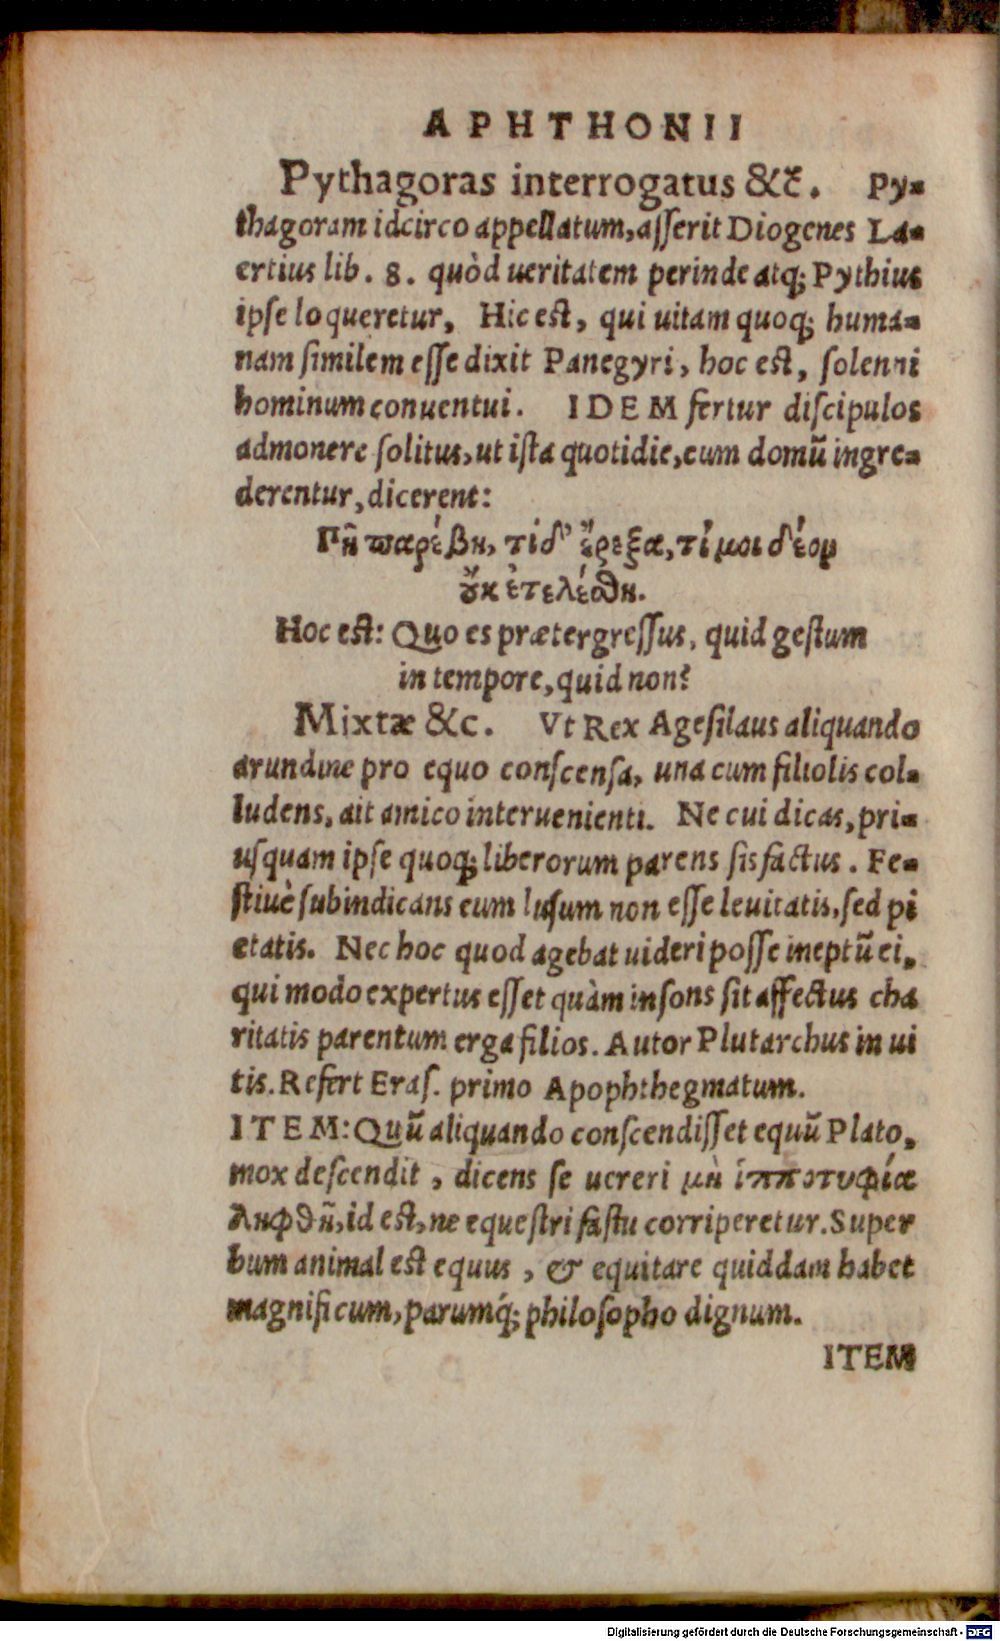 APHTHONII
Pythagoras interrogatus &c̃. Py-
thagoram idcirco appellatum, aſſerit Diogenes La-
ertius lib. 8. quòd ueritatem perinde atq; Pythius
ipſe loqueretur, Hic est, qui uitam quoq; huma-
nam ſimilem eſſe dixit Panegyri, hoc est, ſolenni
hominum conuentui. IDEM fertur diſcipulos
admonere ſolitus, ut iſta quotidie, cum domũ ingre-
derentur, dicerent:
Πῆ παρέβην, τί δ' ἔρεξα, τί μοι δέον
οὐκ ἐτελέσθη.
Hoc est: Quo es prætergreſſus, quid geſtum
in tempore, quid non?
Mixtæ &c. Vt Rex Ageſilaus aliquando
arundine pro equo conſcenſa, una cum filiolis col-
ludens, ait amico interuenienti. Ne cui dicas, pri-
uſquam ipſe quoq; liberorum parens ſis factus. Fe-
ſtiuè ſubindicans eum luſum non eſſe leuitatis, ſed pi
etatis. Nec hoc quod agebat uideri poſſe ineptũ ei,
qui modo expertus eſſet quàm inſons ſit affectus cha
ritatis parentum erga filios. Autor Plutarchus in ui
tis. Refert Eraſ. primo Apophthegmatum.
ITEM: Quũ aliquando conſcendiſſet equũ Plato,
mox deſcendit, dicens ſe uereri μὴ ἱπποτυφίᾳ
ληφθῇ, id est, ne equeſtri faſtu corriperetur. Super
bum animal est equus, & equitare quiddam habet
magnificum, parumq́; philoſopho dignum.
ITEM
Digitalisierung gefördert durch die Deutsche Forschungsgemeinschaft - DFG